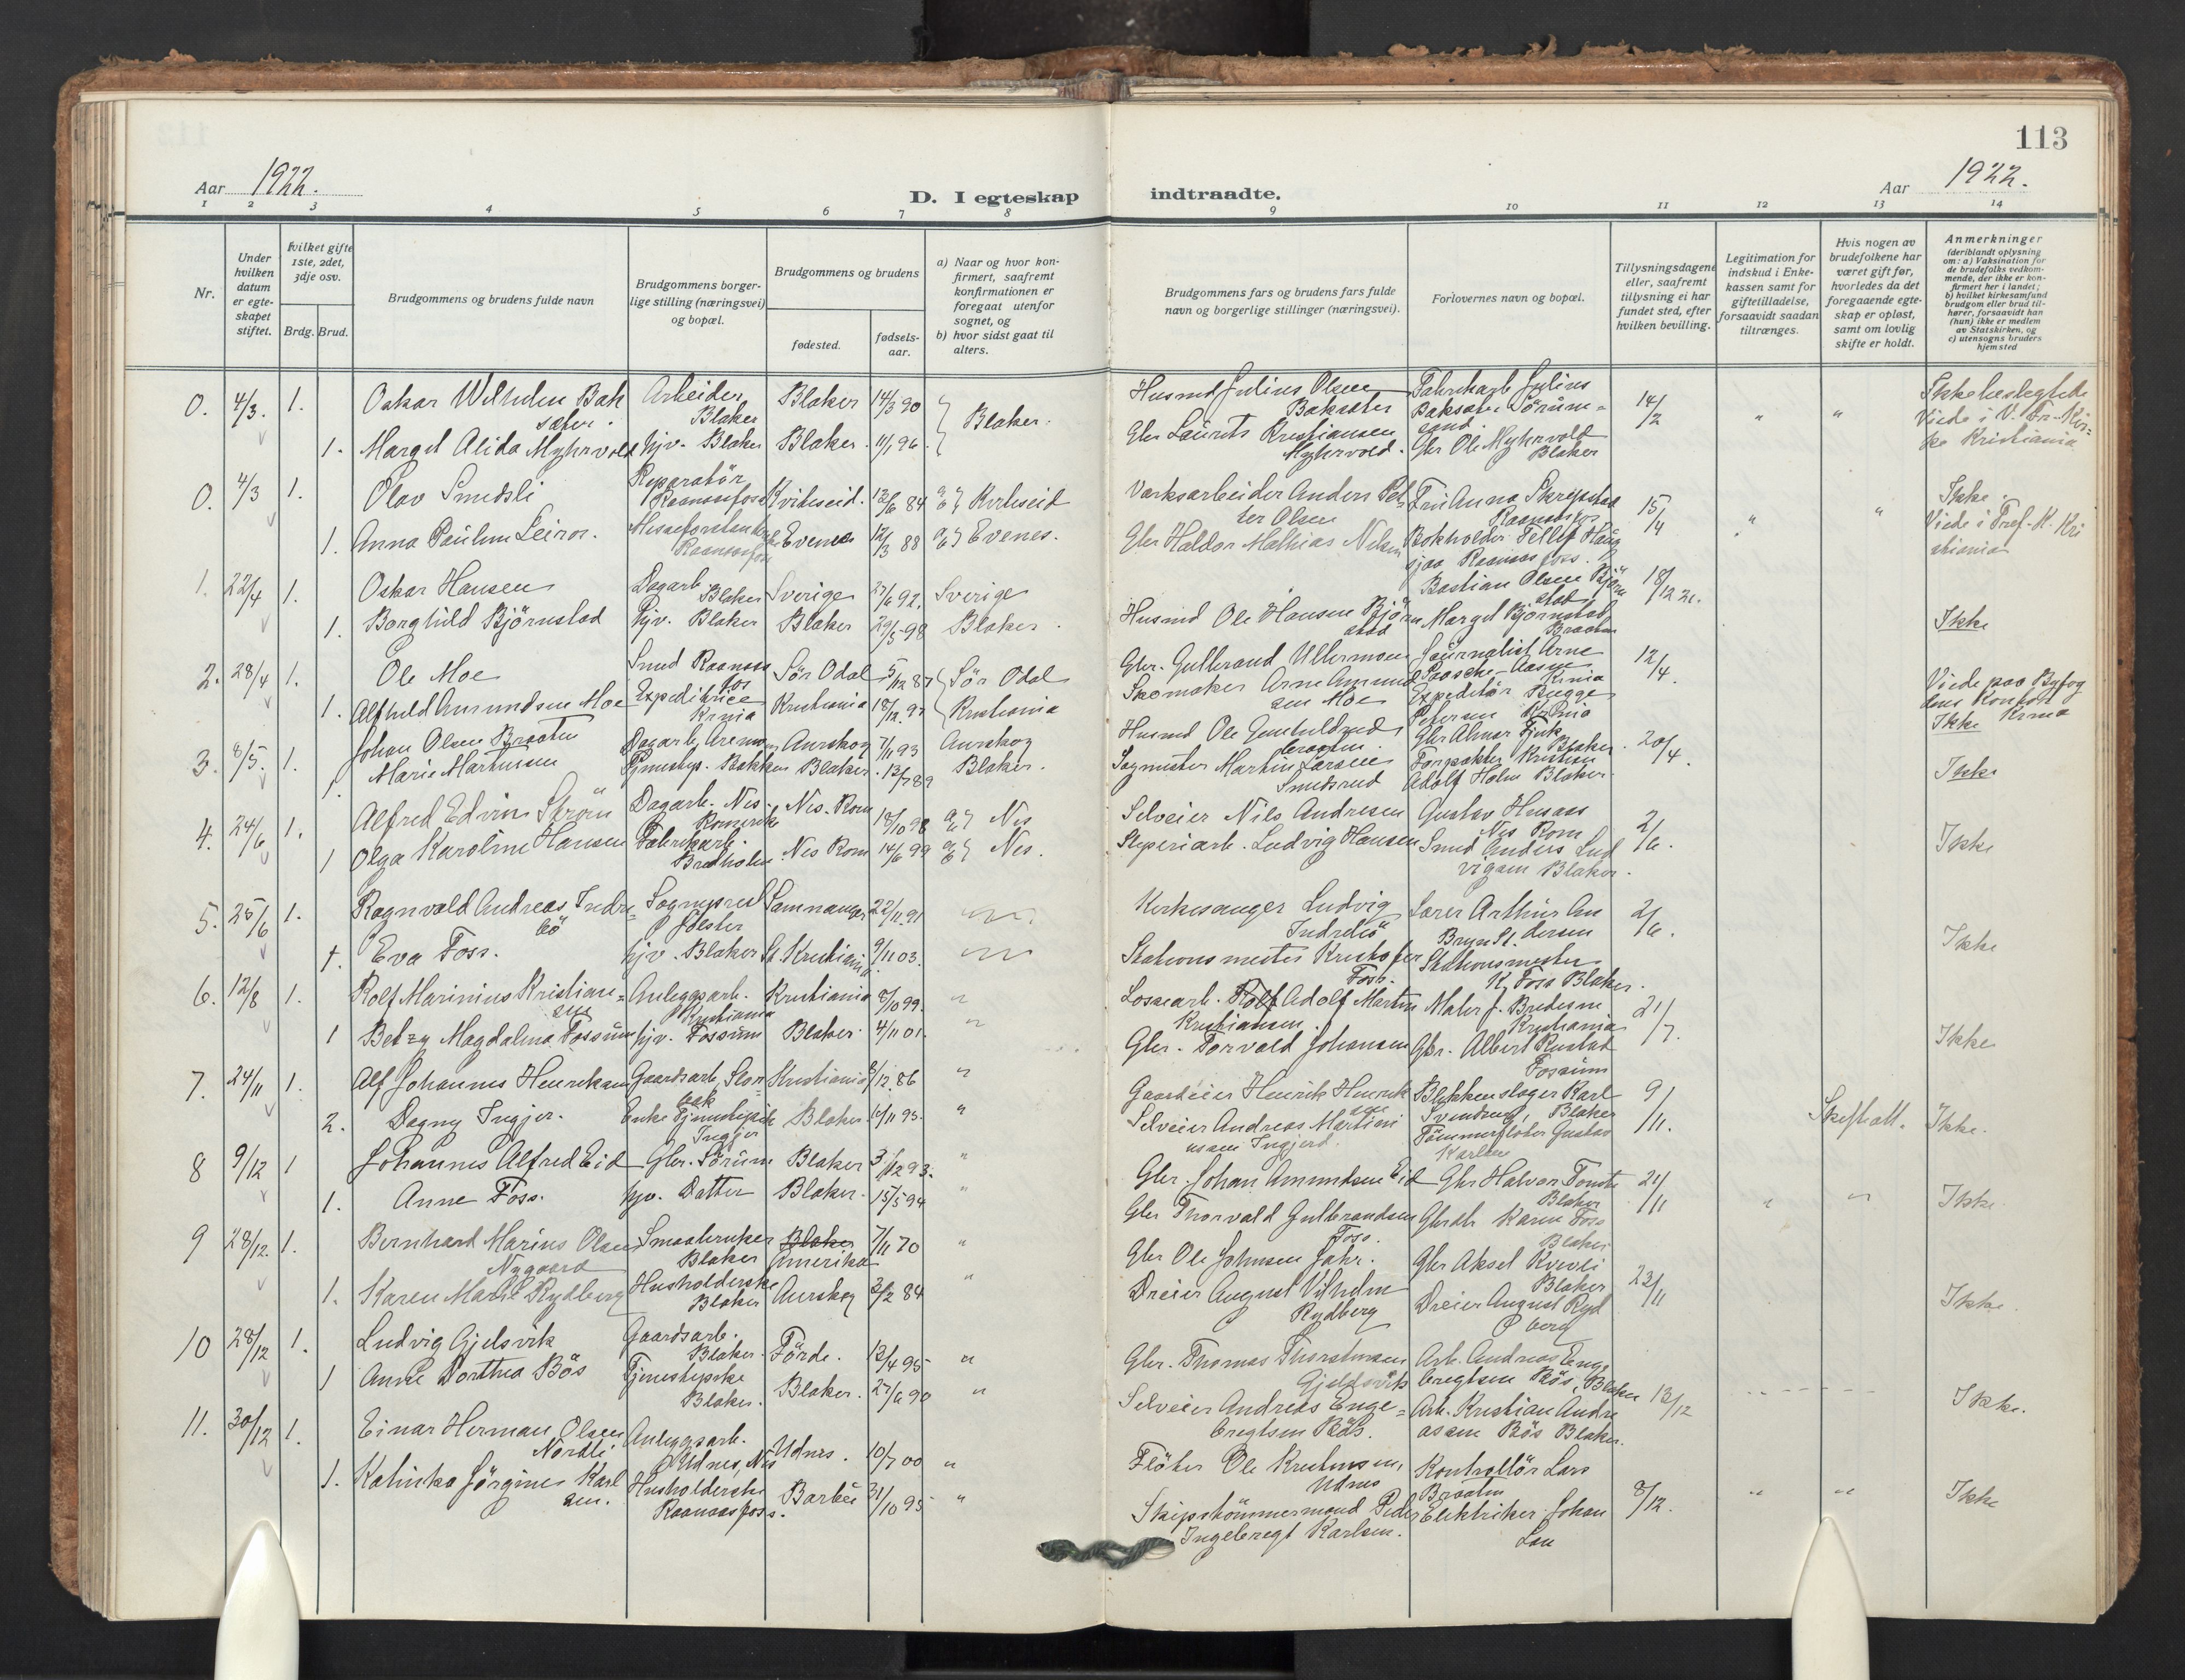 113
Aar 1922.
D. I egteskap indtraadte.
Aar 1922.
1 2 3 4 5 6 7 8 9 10 11 12 13 14
Nr.
Under hvilken datum er egteskapet stiftet.
hvilket gifte 1ste, 2det, 3dje osv.
Brdg. Brud.
Brudgommens og brudens fulde navn
Brudgommens borgerlige stilling (næringsvei) og bopæl.
Brudgommens og brudens
fødested.
fødselsaar.
a) Naar og hvor konfirmert, saafremt konfirmationen er foregaat utenfor sognet, og
b) hvor sidst gaat til alters.
Brudgommens fars og brudens fars fulde navn og borgerlige stillinger (næringsvei).
Forlovernes navn og bopæl.
Tillysningsdagene eller, saafremt tillysning ei har fundet sted, efter hvilken bevilling.
Legitimation for indskud i Enkekassen samt for giftetilladelse, forsaavidt saadan tiltrænges.
Hvis nogen av brudefolkene har været gift før, hvorledes da det foregaaende egteskap er opløst, samt om lovlig skifte er holdt.
Anmerkninger
(deriblandt oplysning om: a) Vaksination for de brudefolks vedkommende, der ikke er konfirmert her i landet; b) hvilket kirkesamfund brudgom eller brud tilhører, forsaavidt han (hun) ikke er medlem av Statskirken, og c) utensogns bruders hjemsted
0. 4/3. 1. Oskar Wilhelm Baksæter. Arbeider Blaker Blaker 14/3 90 Blaker. Husmd Julius Olsen Baksæter Fabrikarb Julius Baksæter Sörumsand. 14/2 " " Ikke beslegtede
1. Margit Alida Myhrvold hjv. Blaker Blaker. 11/1 96. Gbr Laurits Kristiansen Myhrvold. Gbr Ole Myhrvold Blaker Viede i V. Fr. Kirke Kristiania
0. 4/3 1. Olav Smedsli Reparatör Raanaasfoss Kviteseid. 12/6 84 a b } Kviteseid Verksarbeider Anders Petter Olsen Fru Anna Raanaasfos 15/4 " " Ikke.
1. Anna Pauline Leiros. Raanaasfoss Evenes 12/3 88 a b } Evenes. Gbr Haldor Mathias Nilsen Bokholder Raanaasfoss. Viede i Tref. K. Kristiania
1. 22/4 1. Oskar Hansen Dagarb. Blaker Sverige 27/6 92. Sverige Bastian Olsen Björnstad 18/12 21.
1. Borghild Björnstad Hjv. Blaker Blaker 29/5 98 Blaker. Husmd Ole Hansen Björnstad Margit Björnstad Braaten Ikke
2. 28/4 1. Ole Moe Smed Raanaasfos Sör Odal 5/12 87 Sör Odal Gbr. Gulbrand Ullermoen Journalist Arne Paasche-Aasen Krnia 12/4.
1. Alfhild Amundsen Moe Expeditrice Krnia Kristiania 18/12. 97 Kristiania Skomaker Arne Amundsen Moe Expeditör Bugge Petersen Krnia Viede paa Byfogdens Kontor Krnia Ikke
3. 8/5. 1. Johan Olsen Braaten Dagarb, Aremoen Aurskog 7/11 93 Aurskog Husmd Ole Braaten. Gbr Almar Blaker. 20/4.
1. Marie Martinsen Tjenestep. Bakken Blaker. 13/7 89 Blaker. Sagmester Martin Larsen Smedsrud Forpakter Kristian Adolf Holm Blaker. Ikke
4. 24/6 1. Alfred Edvin Skröin Dagarb. Nes Romerike Nes. Rom 18/10 98 a b } Nes Selveier Nils Andresen Gustav Husaas Nes Rom 2/6.
1 Olga Karoline Hansen Fabrikarb. Bredholen. Nes Rom 14/6 99 a b } Nes. Sliperiarb. Ludvig Hansen Smed Anders Ludvigsen Blaker. Ikke
5. 25/6 1. Ragnvald Andreas Indrebö Sogneprest Jölster Samnanger 22/11. 91 Kirkesanger Ludvig Indrebö Lærer Arthur Andersen Bryn St. 2/6.
1. Eva Foss. hjv. Blaker St. Kristiania 9/11 03. Stationsmester Kristofer Foss. Stationsmester K. Foss Blaker. Ikke
6. 12/8 1. Rolf Marinius Kristiansen Anleggsarb. Kristiania Kristiania 8/10 99. " Lossearb. Rolf Adolf Martin Kristiansen. Maler J. Bredesen Kristiania 21/7.
1 Betzy Magdalina Fossum hjv. Fossum Blaker. 4/11 01. " Gbr. Torvald Johansen Gbr. Albert Rustad Fossum Ikke
7. 24/11 1. Alf Johannes Henriksen Gaardsarb. Kristiania 8/12. 86 " Gaardeier Henrik Henriksen Blikkenslager Karl Svendsen, Blaker 9/11.
2. Dagny Ingjer. Enke Tjenestepike Ingjer Blaker. 10/11 93. " Selveier Andreas Martinussen Ingjerd. Tömmerfløter Gustav Karlsen Skifte att. Ikke.
8 9/12 1 Johannes Alfred Eid Gbr. Sörum Blaker 3/12 93. " Gbr. Johan Amundsen Eid Gbr Halvor Blaker 21/11
1. Anne Foss. hjv. Datter Blaker. 15/5 94 " Gbr Thorvald Gulbrandsen Foss. Karen Foss Blaker " " Ikke.
9 28/12. 1. Bernhart Marius Olsen Nygaard Smaabruker Blaker Blaker Amerika 7/11 70 " Gbr Ole Johnsen Jahr. Gbr Aksel Kvevli Blaker 23/11
1. Karen Marie Rydberg Husholderske Blaker Aurskog 3/2 84 " Dreier August Vilhelm Rydberg Dreier August Rydberg Ikke.
10 28/12 1. Ludvig Gjelsvik Gaardsarb. Blaker. Förde. 13/4 95 " Gbr. Thomas Thorstensen Gjeldsvik Arb. Andreas Engebregtsen Bös, Blaker 13/12
1 Anne Dorthea Bös Tjenestepike Blaker. Blaker. 27/6 90 " Selveier Andreas Engebregtsen Bös. Arb. Kristian Andreassen Bös Blaker. Ikke.
11. 30/12 1. Einar Herman Olsen Nordli Anleggsarb. Udnes, Nes Udnes. 10/7 00 " Flöter Ole Kristensen, Udnes Kontrollör Lars Braaten 8/12.
1. Katinka Jörgine Karlsen. Husholderske Raanaasfoss. Barbu 31/10 95 " Skipstömmermand Peder Ingebregt Karlsen. Elektriker Johan Lau " " Ikke